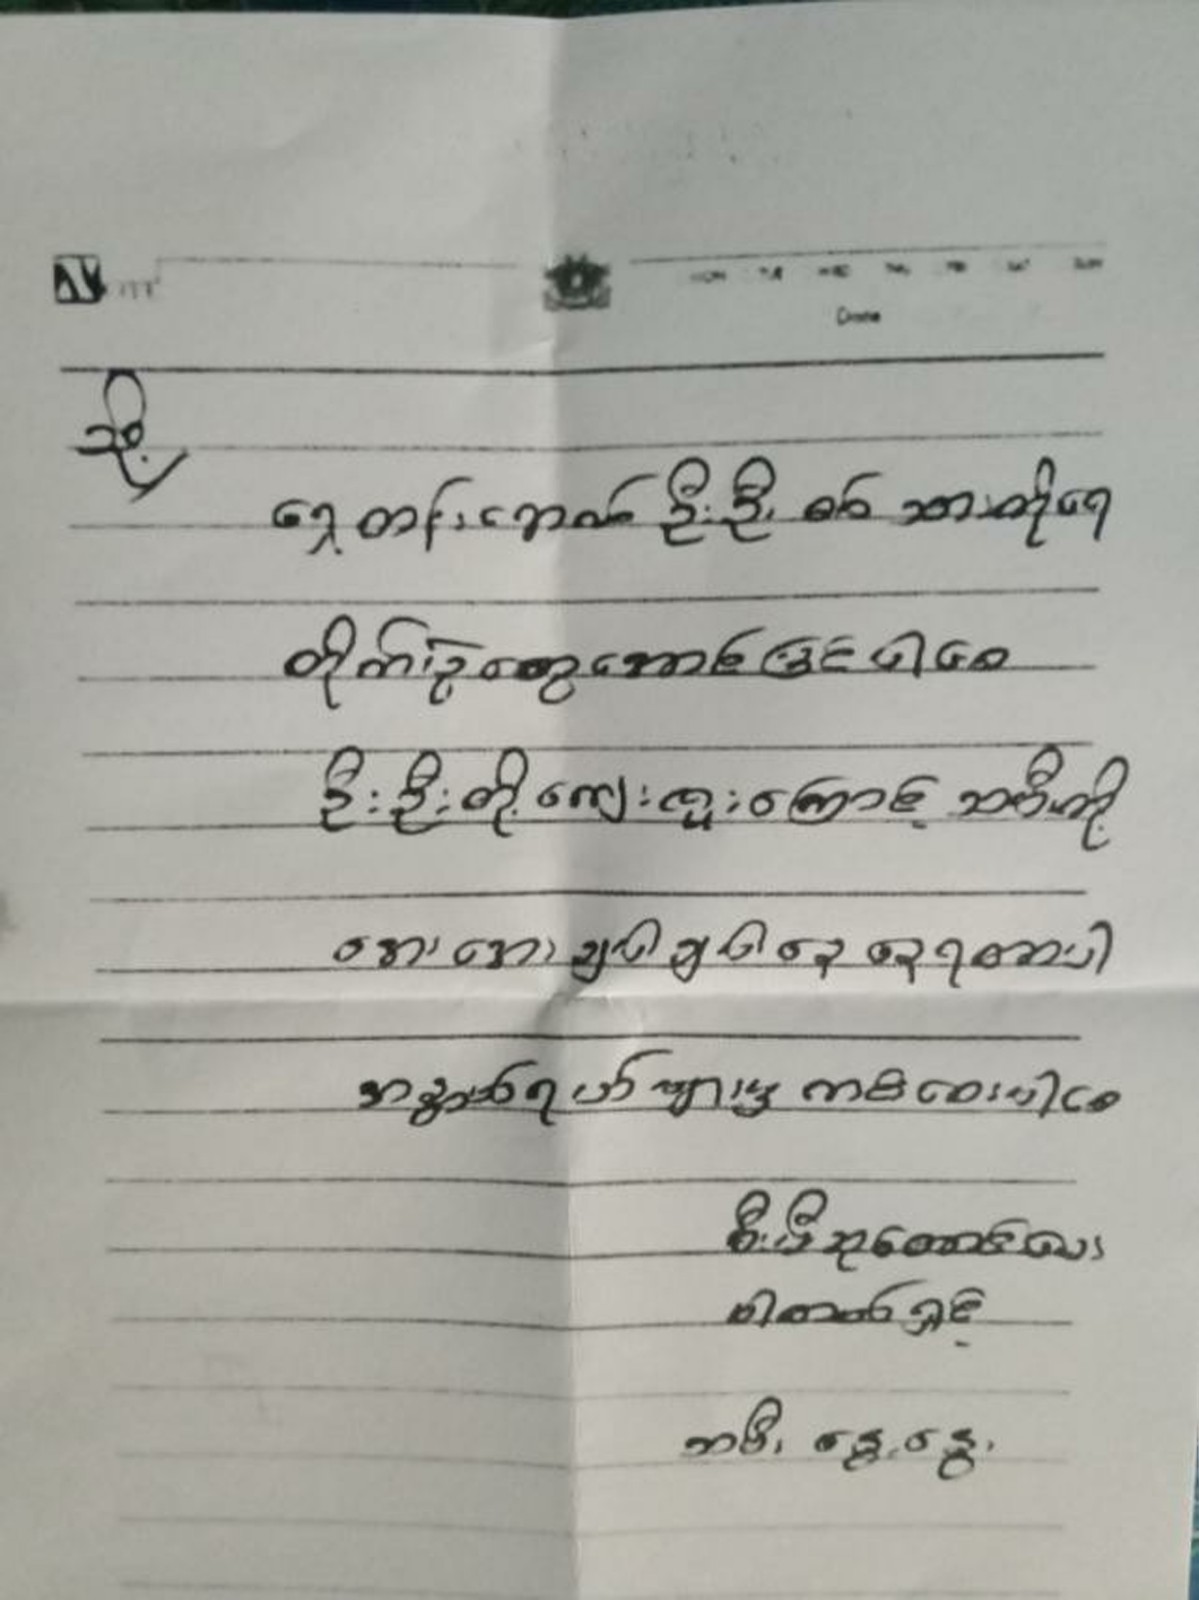 သို့
ရှေ့တန်းရောက် ဦးဦး စစ်သားတို့ရေ
တိုက်ပွဲတွေအောင်မြင်ပါစေ
ဦးဦးတို့ကျေးဇူးကြောင့် သမီးတို့
အေးအေးချမ်းချမ်းနေနေရတာပါ
အန္တရာယ်များမှ ကင်းဝေးပါစေ
ဆုတောင်းပေး
ပါတယ်ရှင့်
သမီး နွေးနွေး
Date